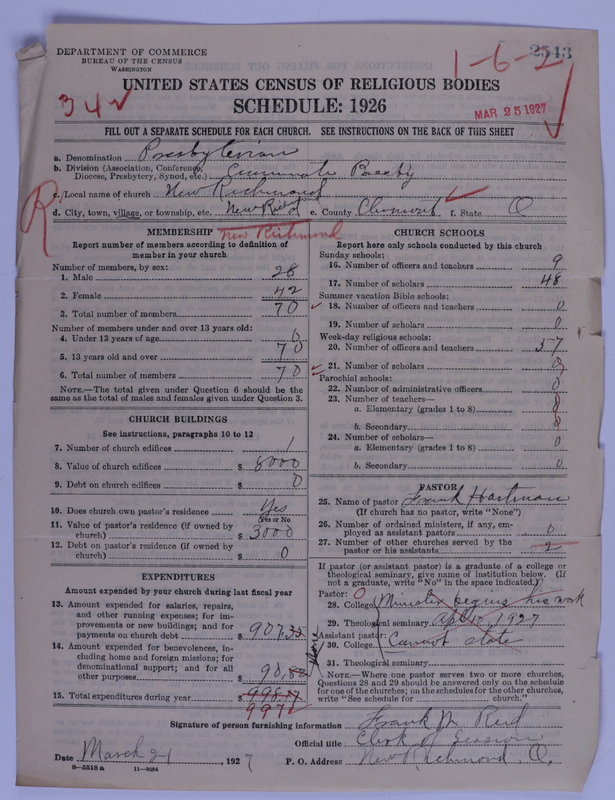 DEPARTMENT OF COMMERCE
BUREAU OF THE CENSUS
WASHINGTON
1-6-2
2543
UNITED STATES CENSUS OF RELIGIOUS BODIES
34
SCHEDULE: 1926
MAR 25 1927
FILL OUT A SEPARATE SCHEDULE FOR EACH CHURCH. SEE INSTRUCTIONS ON THE BACK OF THIS SHEET
a. Denomination Presbyterian
b. Division (Association, Conference, Diocese, Presbytery, Synod, etc.) Cincinnati Presby
c. Local name of church New Richmond
R
d. City, town, village, or township, etc. New Richmond e. County Clermont f. State O
New Richmond
MEMBERSHIP
Report number of members according to definition of
member in your church
Number of members, by sex:
1. Male 28
2. Female 42
3. Total number of members 70
Number of members under and over 13 years old:
4. Under 13 years of age 0
5. 13 years old and over 70
6. Total number of members 70
NOTE.—The total given under Question 6 should be the
same as the total of males and females given under Question 3.
CHURCH BUILDINGS
See instructions, paragraphs 10 to 12
7. Number of church edifices 1
8. Value of church edifices $ 8000
9. Debt on church edifices $ 0
10. Does church own pastor's residence? Yes
(Yes or No)
11. Value of pastor's residence (if owned by
church) $ 3000
12. Debt on pastor's residence (if owned by
church) $ 0
EXPENDITURES
Amount expended by your church during last fiscal year
13. Amount expended for salaries, repairs,
and other running expenses; for im-
provements or new buildings; and for
payments on church debt $ 907.35
14. Amount expended for benevolences,
including home and foreign missions; for
denominational support; and for all
other purposes $ 90.82
15. Total expenditures during year $ 998.17
997
CHURCH SCHOOLS
Report here only schools conducted by this church
Sunday schools:
16. Number of officers and teachers 9
17. Number of scholars 48
Summer vacation Bible schools:
18. Number of officers and teachers 0
19. Number of scholars 0
Week-day religious schools:
20. Number of officers and teachers 57
21. Number of scholars 0
Parochial schools:
22. Number of administrative officers 0
23. Number of teachers—
a. Elementary (grades 1 to 8) 0
b. Secondary 0
24. Number of scholars—
a. Elementary (grades 1 to 8) 0
b. Secondary 0
PASTOR
25. Name of pastor Frank Hartman
(If church has no pastor, write "None")
26. Number of ordained ministers, if any, em-
ployed as assistant pastors 0
27. Number of other churches served by the
pastor or his assistants 2
If pastor (or assistant pastor) is a graduate of a college or
theological seminary, give name of institution below. (If
not a graduate, write "No" in the space indicated.)
Pastor: 0
28. College Minister begins his work
29. Theological seminary Apr 1927
Assistant pastor:
30. College Cannot state
31. Theological seminary
NOTE.—Where one pastor serves two or more churches,
Questions 28 and 29 should be answered only on the schedule
for one of the churches; on the schedules for the other churches,
write "See schedule for church."
Signature of person furnishing information Frank M. Reid
Official title Clerk of Session
Date March 21, 1927 P. O. Address New Richmond O.
8—5518 a 11—9054